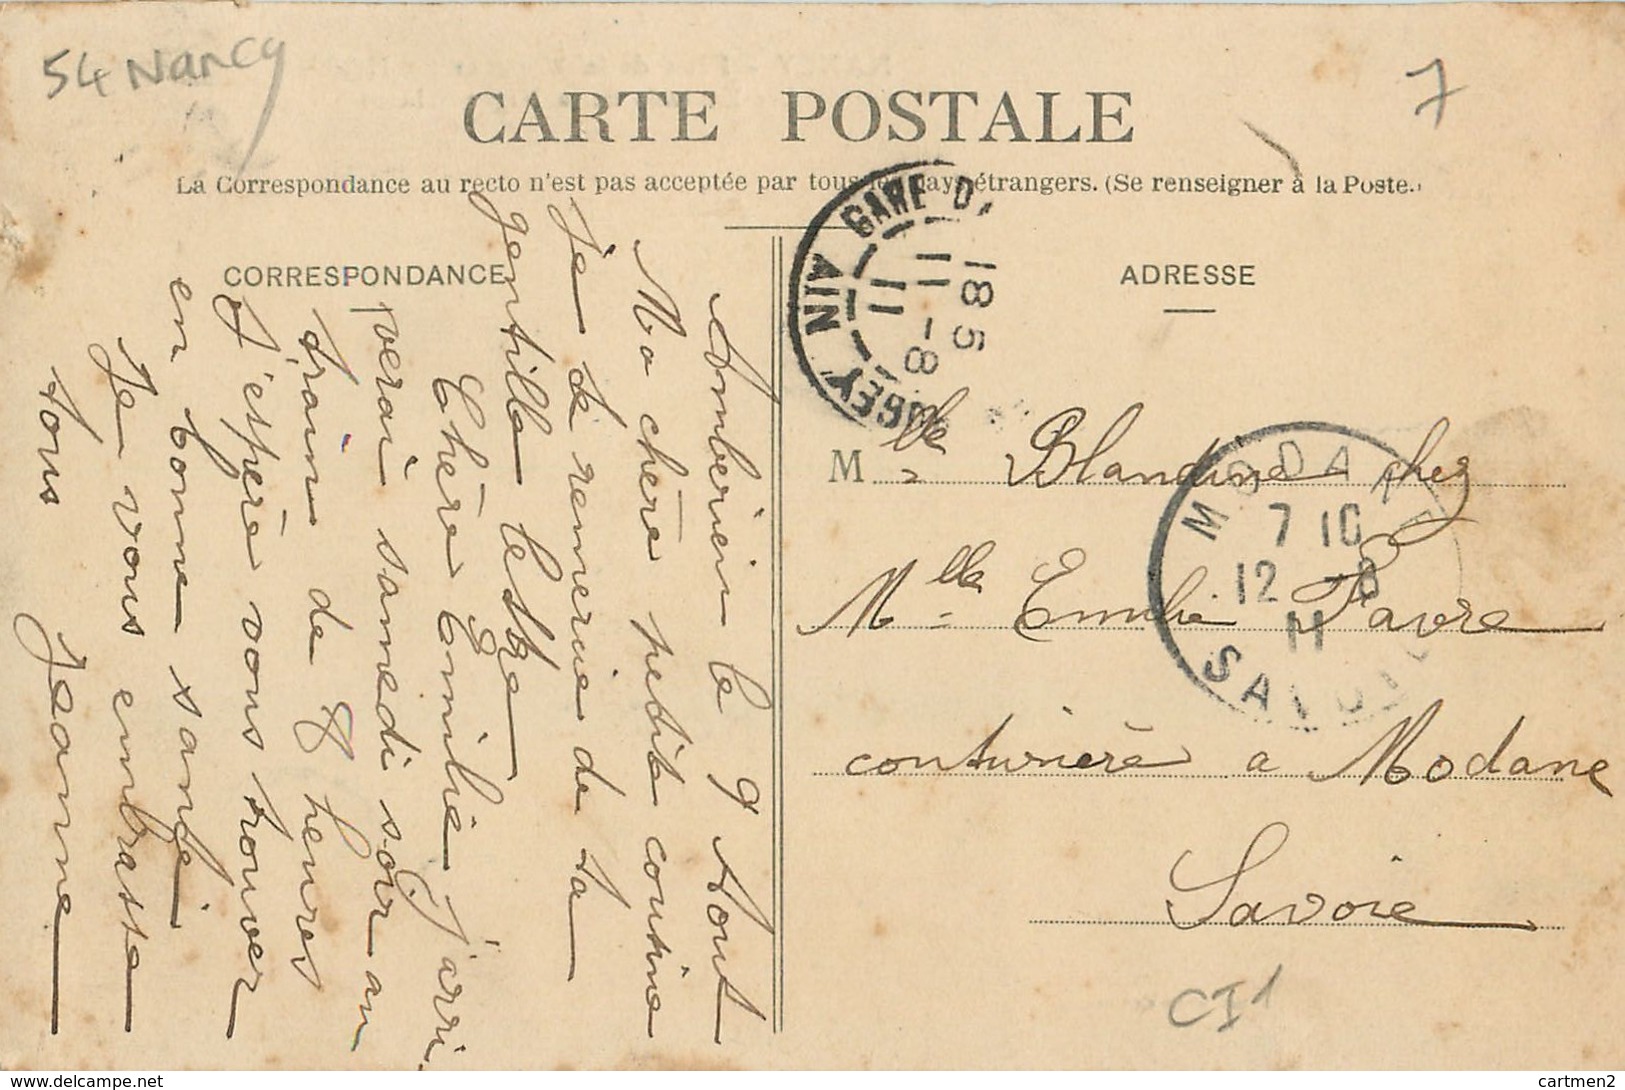 54 Nancy
7
CARTE POSTALE
La Correspondance au recto n'est pas acceptée par tous les pays étrangers. (Se renseigner à la Poste.)
CORRESPONDANCE
Ambérieu le 9 Aout
Ma chère petite cousine
Je te remercie de ta
gentille lettre
Chère Emilie J'arri
verai samedi soir au
train de 8 heures
J'espère vous trouver
en bonne santé
Je vous embrasse
tous Jeanne
GARE D'
BUGEY
AIN
18 5
11 - 8
11
ADRESSE
Mlle Blandine chez
Mlle Emilie Favre
couturière a Modane
Savoie
MODANE
7 10
12 -8
11
SAVOIE
CI1
delcampe.net
cartmen2